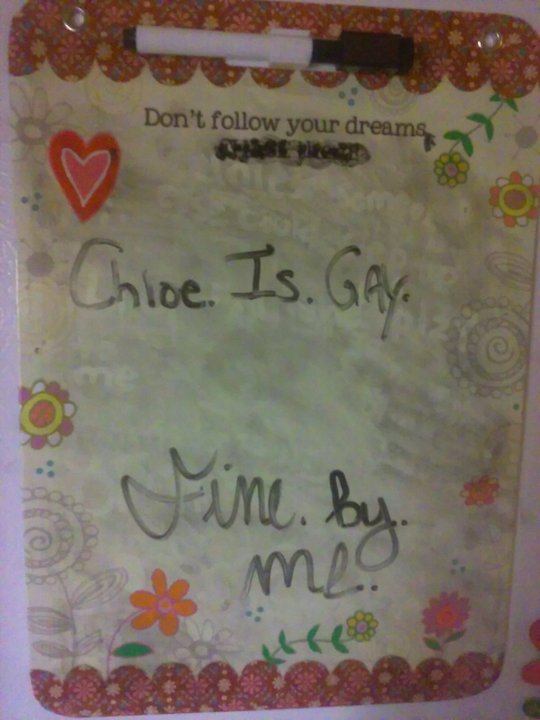 Don't follow your dreams,
Chloe. Is. GAY.
Fine. by.
me..